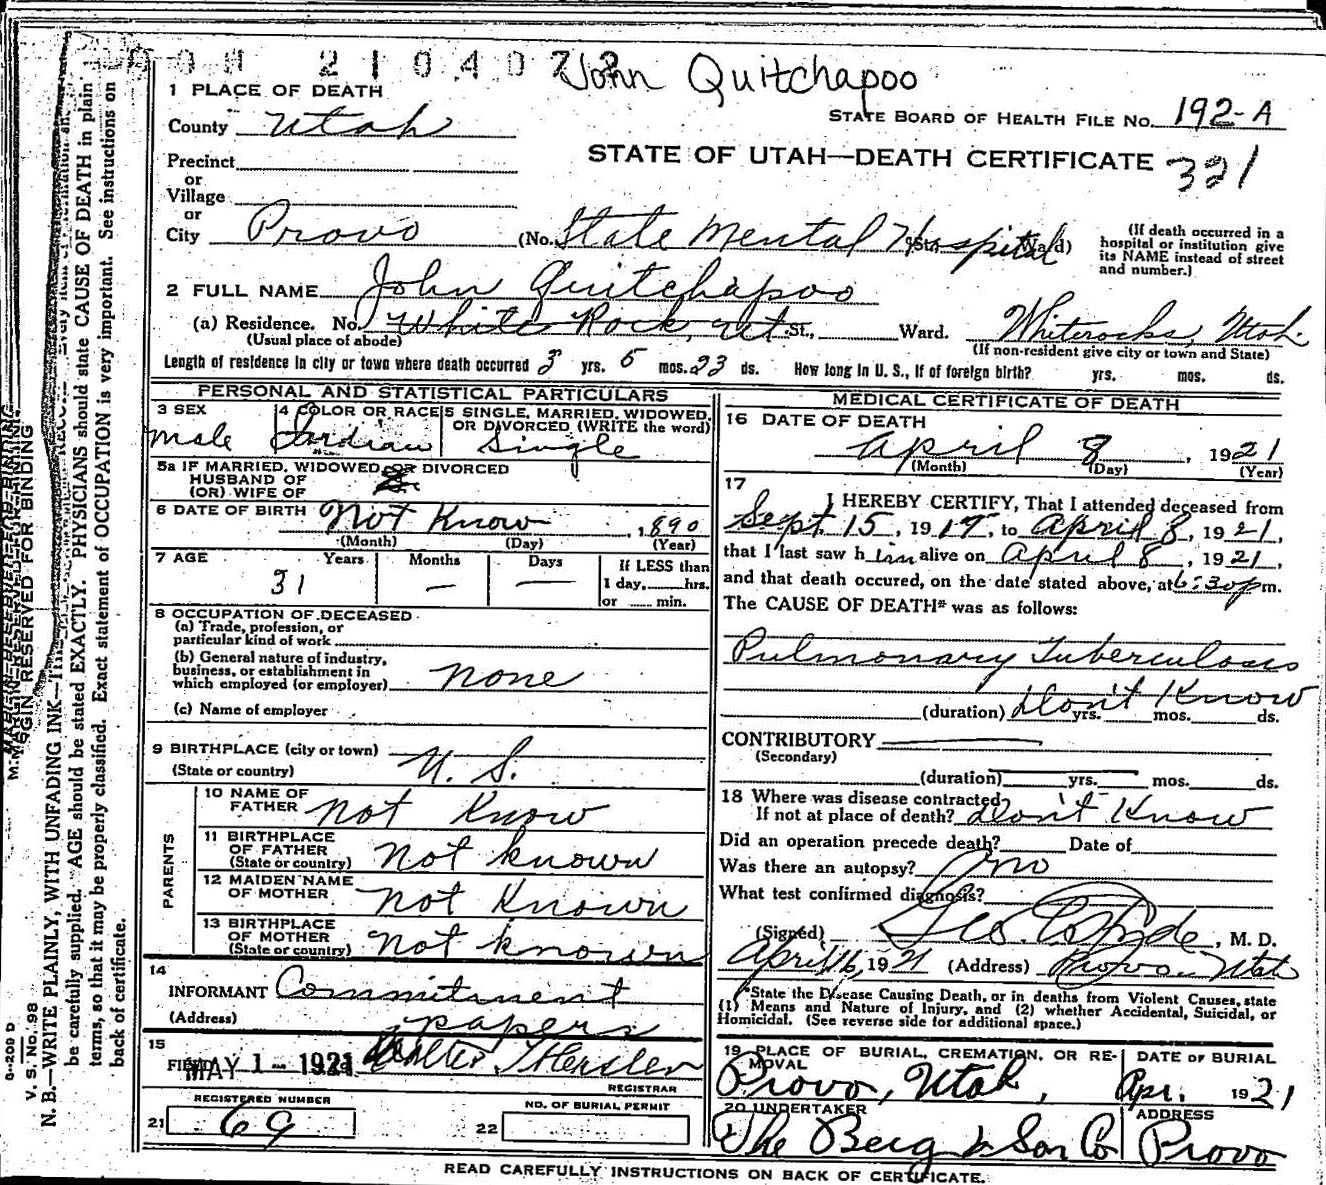 210407
John Quitchapoo
1 PLACE OF DEATH
STATE BOARD OF HEALTH FILE NO. 192-A
County Utah
STATE OF UTAH—DEATH CERTIFICATE 321
Precinct
or
Village
or
City Provo (No. State Mental Hospital St. Ward)
(If death occurred in a hospital or institution give its NAME instead of street and number.)
2 FULL NAME John Quitchapoo
(a) Residence. No. White Rock, Ut St., Ward. Whiterocks, Utah
(Usual place of abode) (If non-resident give city or town and State)
Length of residence in city or town where death occurred 3 yrs. 6 mos. 23 ds. How long in U. S., if of foreign birth? yrs. mos. ds.
PERSONAL AND STATISTICAL PARTICULARS
3 SEX 4 COLOR OR RACE 5 SINGLE, MARRIED, WIDOWED, OR DIVORCED (WRITE the word)
male Indian Single
5a IF MARRIED, WIDOWED OR DIVORCED
HUSBAND OF
(OR) WIFE OF
6 DATE OF BIRTH Not Know, 1890
(Month) (Day) (Year)
7 AGE Years Months Days If LESS than
31 — — 1 day, hrs.
or min.
8 OCCUPATION OF DECEASED
(a) Trade, profession, or
particular kind of work
(b) General nature of industry,
business, or establishment in
which employed (or employer) none
(c) Name of employer
9 BIRTHPLACE (city or town)
(State or country) U. S.
PARENTS
10 NAME OF
FATHER not Know
11 BIRTHPLACE
OF FATHER
(State or country) not known
12 MAIDEN NAME
OF MOTHER not Known
13 BIRTHPLACE
OF MOTHER
(State or country) not known
14
INFORMANT Commitment
(Address) papers
15
FILED MAY 1 1921 Walter T Hasler
REGISTRAR
REGISTERED NUMBER NO. OF BURIAL PERMIT
21 69 22
MEDICAL CERTIFICATE OF DEATH
16 DATE OF DEATH
April 8, 1921
(Month) (Day) (Year)
17
I HEREBY CERTIFY, That I attended deceased from
Sept. 15, 1917, to April 8, 1921,
that I last saw him alive on April 8, 1921,
and that death occured, on the date stated above, at 6:30 p m.
The CAUSE OF DEATH* was as follows:
Pulmonary Tuberculosis
(duration) Don't Know yrs. mos. ds.
CONTRIBUTORY
(Secondary)
(duration) yrs. mos. ds.
18 Where was disease contracted
If not at place of death? Don't Know
Did an operation precede death? Date of
Was there an autopsy? no
What test confirmed diagnosis?
(Signed) Geo. E. Hyde, M. D.
April 16, 1921 (Address) Provo Utah
*State the Disease Causing Death, or in deaths from Violent Causes, state
(1) Means and Nature of Injury, and (2) whether Accidental, Suicidal, or
Homicidal. (See reverse side for additional space.)
19 PLACE OF BURIAL, CREMATION, OR RE- DATE OF BURIAL
MOVAL
Provo, Utah, Apr. 1921
20 UNDERTAKER ADDRESS
The Berg & Son Co Provo
READ CAREFULLY INSTRUCTIONS ON BACK OF CERTIFICATE.
MARGIN RESERVED FOR BINDING
V. S. No. 98
N. B.—WRITE PLAINLY, WITH UNFADING INK—
be carefully supplied. AGE should be stated EXACTLY. PHYSICIANS should state CAUSE OF DEATH in plain
terms, so that it may be properly classified. Exact statement of OCCUPATION is very important. See instructions on
back of certificate.